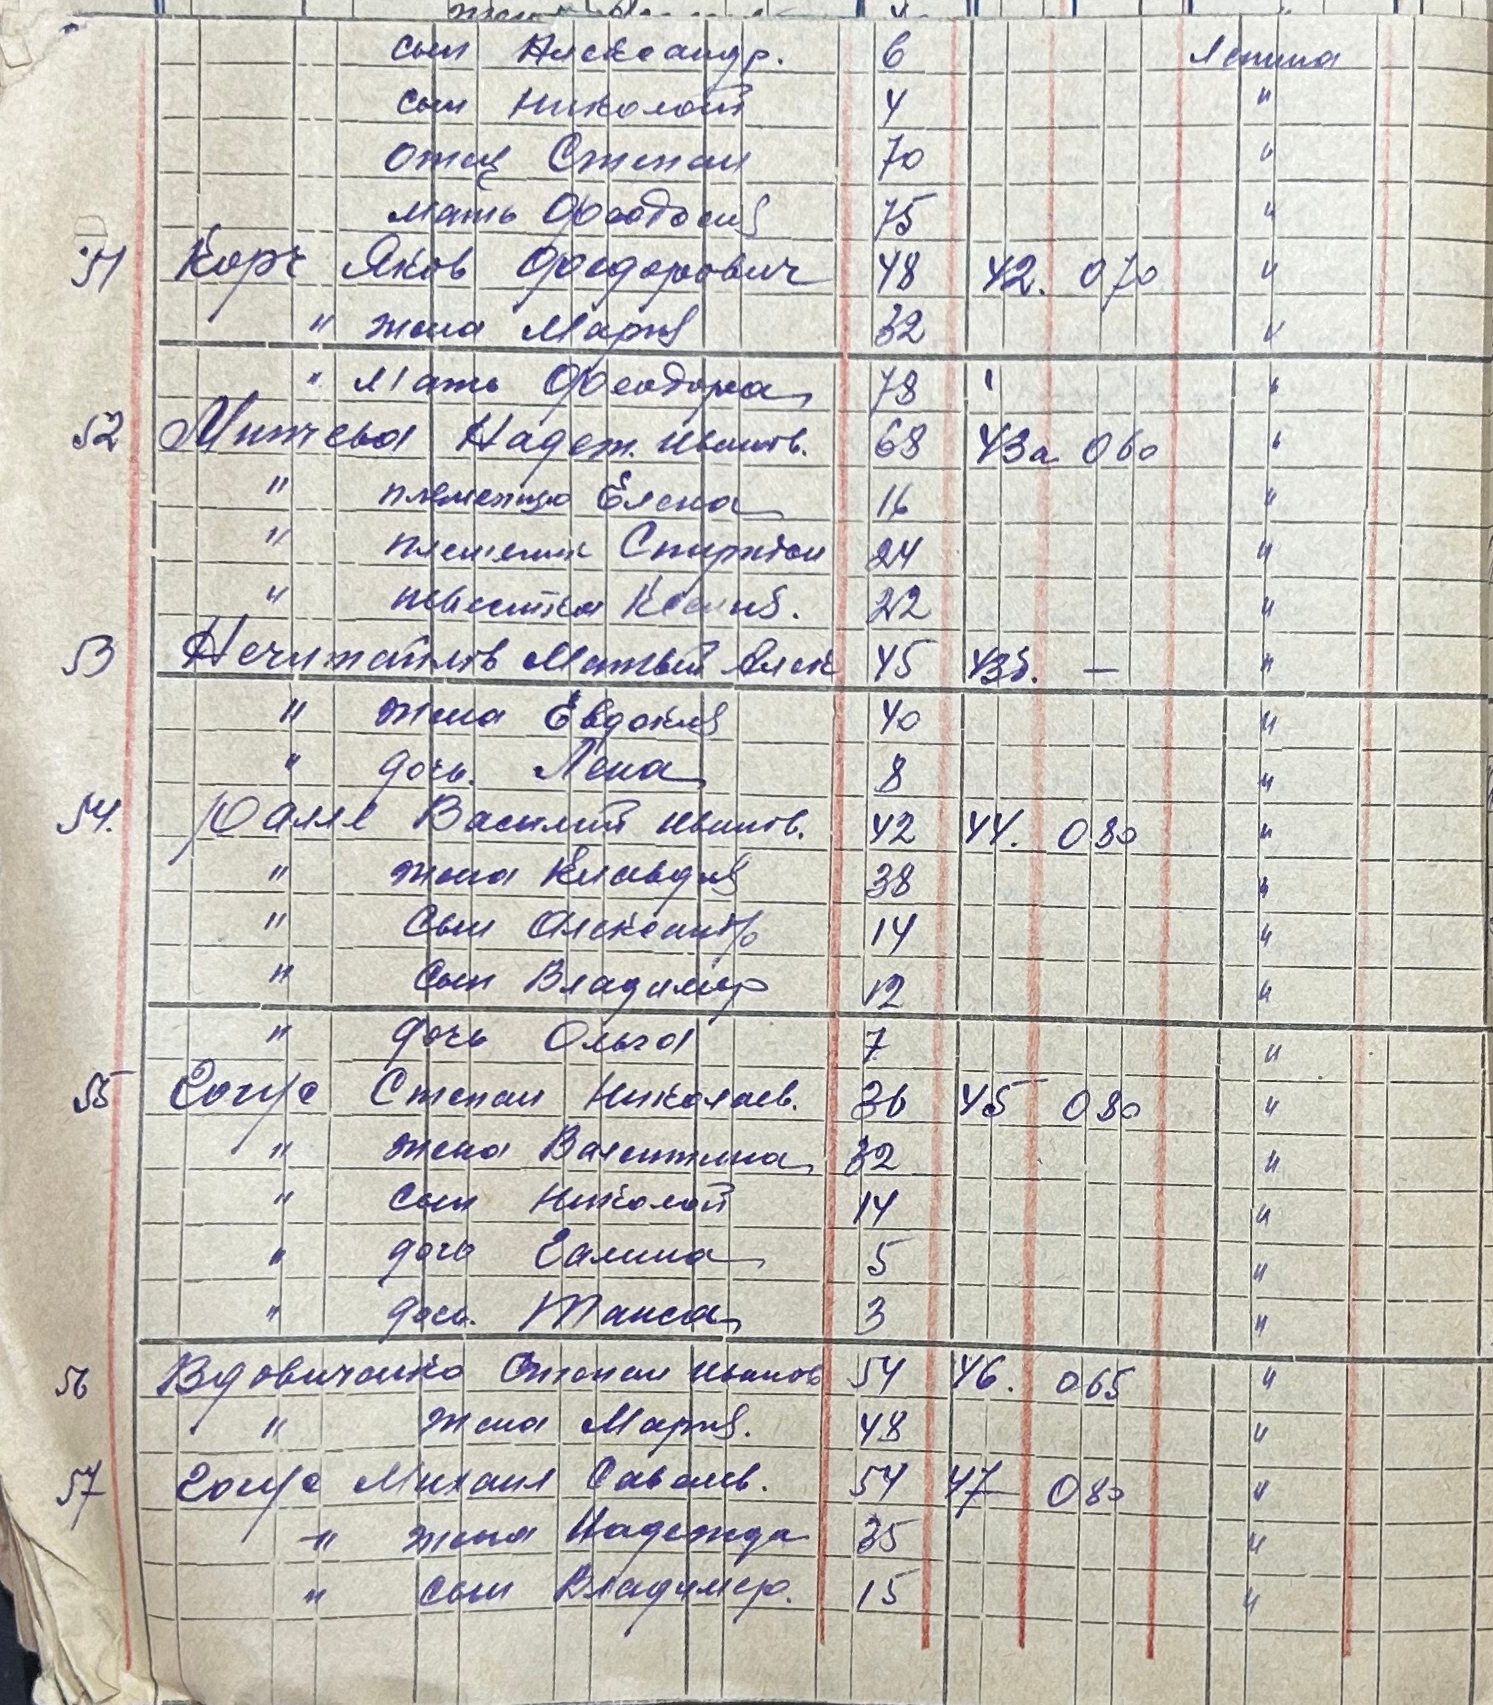 сын Александр. 6 Ленина
сын Николай 4 "
отец Степан 70 "
мать Феодосия 75 "
51 Корч Яков Феодорович 48 42. 070 "
" жена Мария 32 "
" мать Феодора 78 "
52 Надеж. Иванов. 68 43а 060 "
" племенца Елена 16 "
" племеник Спиридон 24 "
" невестка 22 "
53 Нечитайлов Матвей Алек 45 43б. — "
" жена Евдокия 40 "
" дочь. Лена 8 "
54. Ралле Василий Иванов. 42 44. 080 "
" жена Клавдия 38 "
" сын Александр 14 "
" сын Владимир 12 "
" дочь Ольга 7 "
55 Степан Николаев. 36 45 080 "
" жена Валентина 32 "
" сын Николай 14 "
" дочь Галина 5 "
" дочь. Таиса 3 "
56 Вдовиченко Степан Иванов 54 46. 065 "
" жена Мария. 48 "
57 Михаил Савелев. 54 47 080 "
" жена Надежда 35 "
" сын Владимер. 15 "